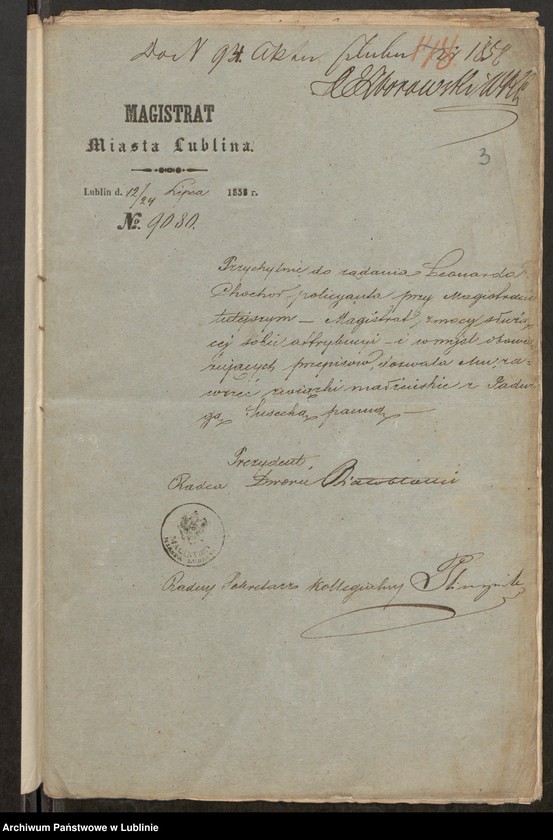 Do N 94. Aktu ślubu 1858
MAGISTRAT
Miasta Lublina.
3
Lublin d. 12/24 Lipca 1858 r.
№ 9080.
Przychylnie do żądania Leonarda
policyanta przy Magistracie
tutejszym – Magistrat, z mocy służą-
cej sobie attrybucyi – i w myśl obowią-
zujących przepisów, dozwala Mu, za-
wrzeć związki małżeńskie z Jadwi-
gą panną –
Prezydent,
Radca Dworu
MAGISTRAT
Radny Sekretarz Kollegialny
Archiwum Państwowe w Lublinie